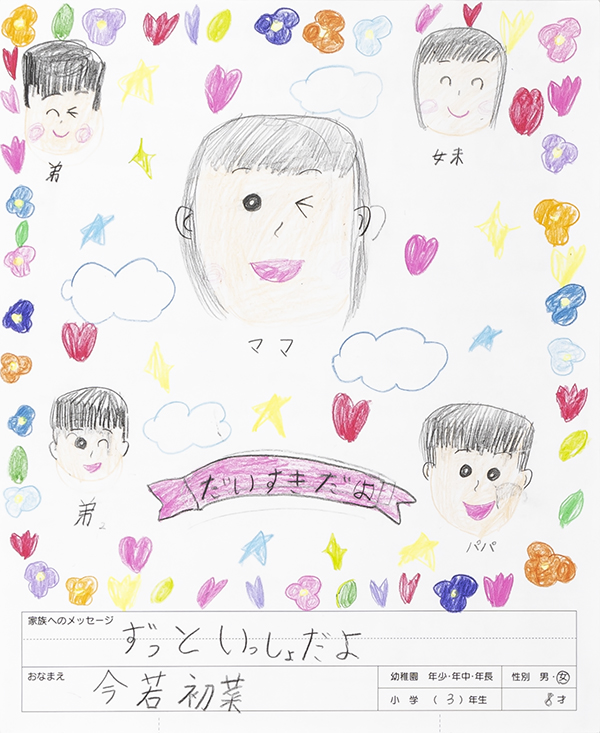 弟
妹
ママ
弟2
だいすきだよ
パパ
家族へのメッセージ
ずっと いっしょだよ
おなまえ
今若初菜
幼稚園 年少・年中・年長
小学 (3)年生
性別 男・女
8才